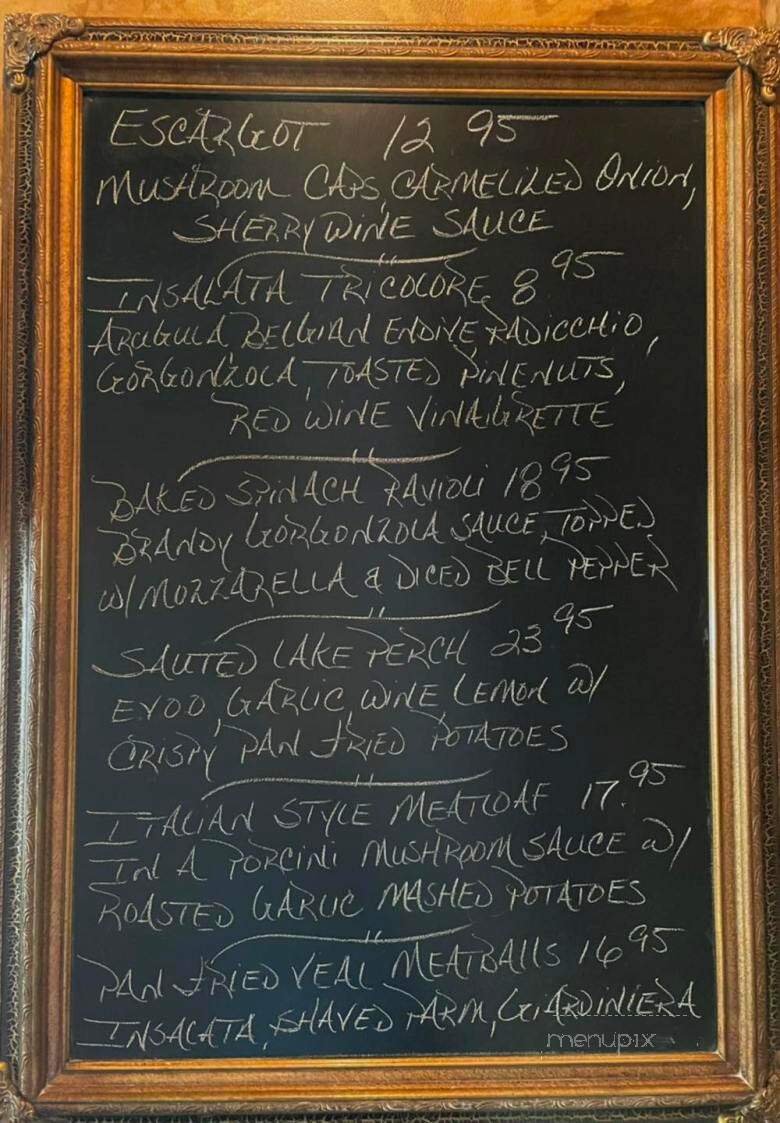 ESCARGOT 12 95
MUSHROOM CAPS, CARMELILED ONION,
SHERRY WINE SAUCE
INSALATA TRICOLORE 8 95
ARUGULA, BELGIAN ENDIVE, RADICCHIO,
GORGONZOLA, TOASTED PINENUTS,
RED WINE VINAIGRETTE
BAKED SPINACH RAVIOLI 18 95
BRANDY GORGONZOLA SAUCE, TOPPED
W/ MOZZARELLA & DICED BELL PEPPER
SAUTED LAKE PERCH 23 95
EVOO, GARLIC, WINE, LEMON W/
CRISPY PAN FRIED POTATOES
ITALIAN STYLE MEATLOAF 17.95
IN A PORCINI MUSHROOM SAUCE W/
ROASTED GARLIC MASHED POTATOES
PAN FRIED VEAL MEATBALLS 16 95
INSALATA, SHAVED PARM, GIARDINIERA
menupix